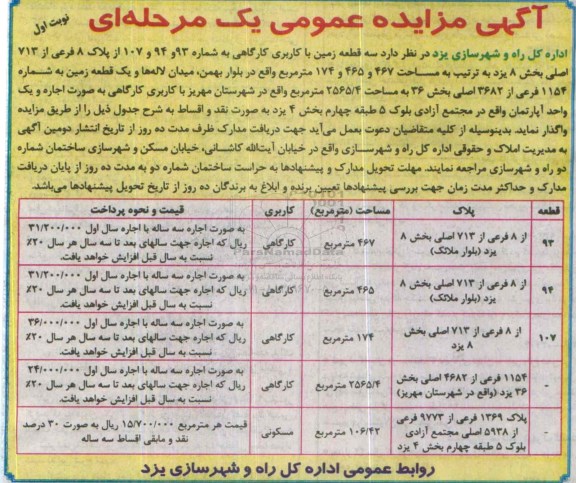 آگهی مزایده عمومی یک مرحله‌ای
نوبت اول
اداره کل راه و شهرسازی یزد در نظر دارد سه قطعه زمین با کاربری کارگاهی به شماره ۹۳ و ۹۴ و ۱۰۷ از پلاک ۸ فرعی از ۷۱۳
اصلی بخش ۸ یزد به ترتیب به مساحت ۴۶۷ و ۴۶۵ و ۱۷۴ مترمربع واقع در بلوار بهمن، میدان لاله‌ها و یک قطعه زمین به شماره
۱۱۵۴ فرعی از ۳۶۸۲ اصلی بخش ۳۶ به مساحت ۲۵۶۵/۴ مترمربع واقع در شهرستان مهریز با کاربری کارگاهی به صورت اجاره و یک
واحد آپارتمان واقع در مجتمع آزادی بلوک ۵ طبقه چهارم بخش ۴ یزد به صورت نقد و اقساط به شرح جدول ذیل را از طریق مزایده
واگذار نماید. بدینوسیله از کلیه متقاضیان دعوت بعمل می‌آید جهت دریافت مدارک ظرف مدت ده روز از تاریخ انتشار دومین آگهی
به مدیریت املاک و حقوقی اداره کل راه و شهرسازی واقع در خیابان آیت‌الله کاشانی، خیابان مسکن و شهرسازی ساختمان شماره
دو راه و شهرسازی مراجعه نمایند. مهلت تحویل مدارک و پیشنهادها به حراست ساختمان شماره دو به مدت ده روز از پایان دریافت
مدارک و حداکثر مدت زمان جهت بررسی پیشنهادها تعیین برنده و ابلاغ به برندگان ده روز از تاریخ تحویل پیشنهادها می‌باشد.
قطعه پلاک مساحت (مترمربع) کاربری قیمت و نحوه پرداخت
۹۳ از ۸ فرعی از ۷۱۳ اصلی بخش ۸ ۴۶۷ مترمربع کارگاهی به صورت اجاره سه ساله با اجاره سال اول ۳۱/۲۰۰/۰۰۰
یزد (بلوار ملائک) ریال که اجاره جهت سالهای بعد تا سه سال هر سال ۲۰٪
نسبت به سال قبل افزایش خواهد یافت.
۹۴ از ۸ فرعی از ۷۱۳ اصلی بخش ۸ ۴۶۵ مترمربع کارگاهی به صورت اجاره سه ساله با اجاره سال اول ۳۱/۲۰۰/۰۰۰
یزد (بلوار ملائک) ریال که اجاره جهت سالهای بعد تا سه سال هر سال ۲۰٪
نسبت به سال قبل افزایش خواهد یافت.
۱۰۷ از ۸ فرعی از ۷۱۳ اصلی بخش ۱۷۴ مترمربع کارگاهی به صورت اجاره سه ساله با اجاره سال اول ۳۶/۰۰۰/۰۰۰
۸ یزد ریال که اجاره جهت سالهای بعد تا سه سال هر سال ۲۰٪
نسبت به سال قبل افزایش خواهد یافت.
- ۱۱۵۴ فرعی از ۴۶۸۲ اصلی بخش ۲۵۶۵/۴ مترمربع کارگاهی به صورت اجاره سه ساله با اجاره سال اول ۲۴/۰۰۰/۰۰۰
۳۶ یزد (واقع در شهرستان مهریز) ریال که اجاره جهت سالهای بعد تا سه سال هر سال ۲۰٪
نسبت به سال قبل افزایش خواهد یافت.
- پلاک ۱۳۶۹ فرعی از ۹۷۷۳ فرعی ۱۰۶/۴۲ مترمربع مسکونی قیمت هر مترمربع ۱۵/۷۰۰/۰۰۰ ریال به صورت ۳۰ درصد
از ۵۹۳۸ اصلی مجتمع آزادی نقد و مابقی اقساط سه ساله
بلوک ۵ طبقه چهارم بخش ۴ یزد
روابط عمومی اداره کل راه و شهرسازی یزد